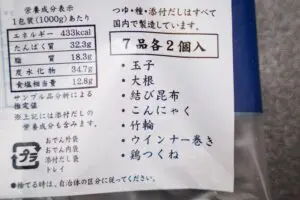 栄養成分表示
1包装(1000g)あたり
エネルギー 433kcal
たんぱく質 32.3g
脂質 18.3g
炭水化物 34.7g
食塩相当量 12.8g
サンプル品分析による
推定値
※上記には添付だしの
栄養成分も含みます。
プラ
おでん外袋
おでん内袋
添付だし袋
トレイ
●捨てる時は、自治体の区分に従ってください。
つゆ・種・添付だしはすべて
国内で製造しています。
7品各2個入
・玉子
・大根
・結び昆布
・こんにゃく
・竹輪
・ウインナー巻き
・鶏つくね